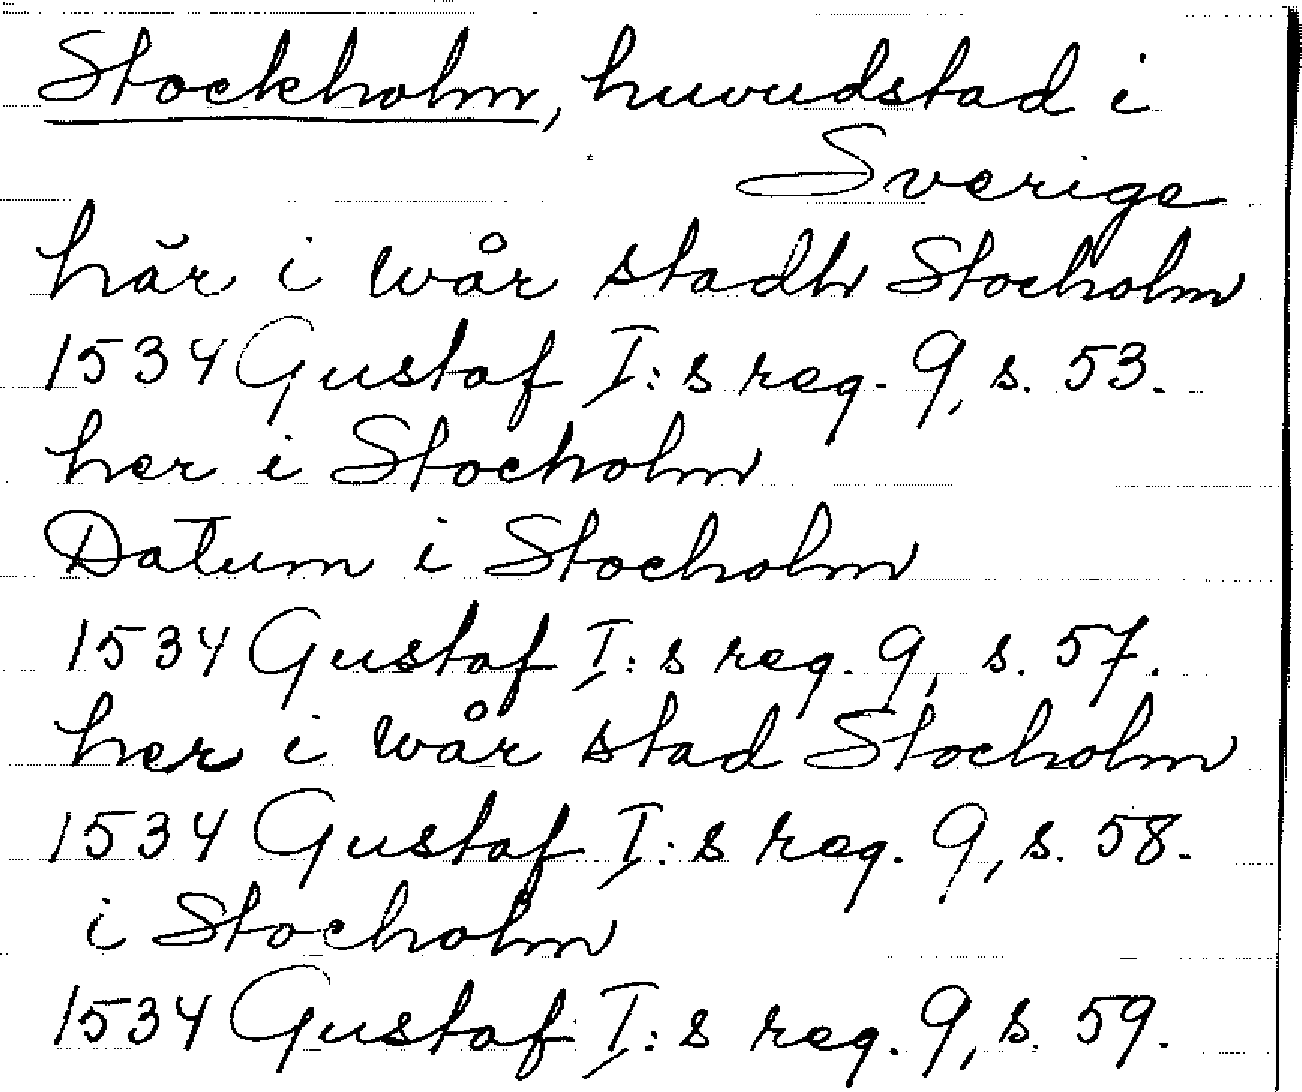 Stockholm, huvudstad i
Sverige
här i wår stadh Stocholm
1534 Gustaf I:s reg. 9, s. 53.
her i Stocholm
Datum i Stocholm
1534 Gustaf I:s reg. 9, s. 57.
her i wår stad Stocholm
1534 Gustaf I:s reg. 9, s. 58.
i Stocholm
1534 Gustaf I:s reg. 9, s. 59.